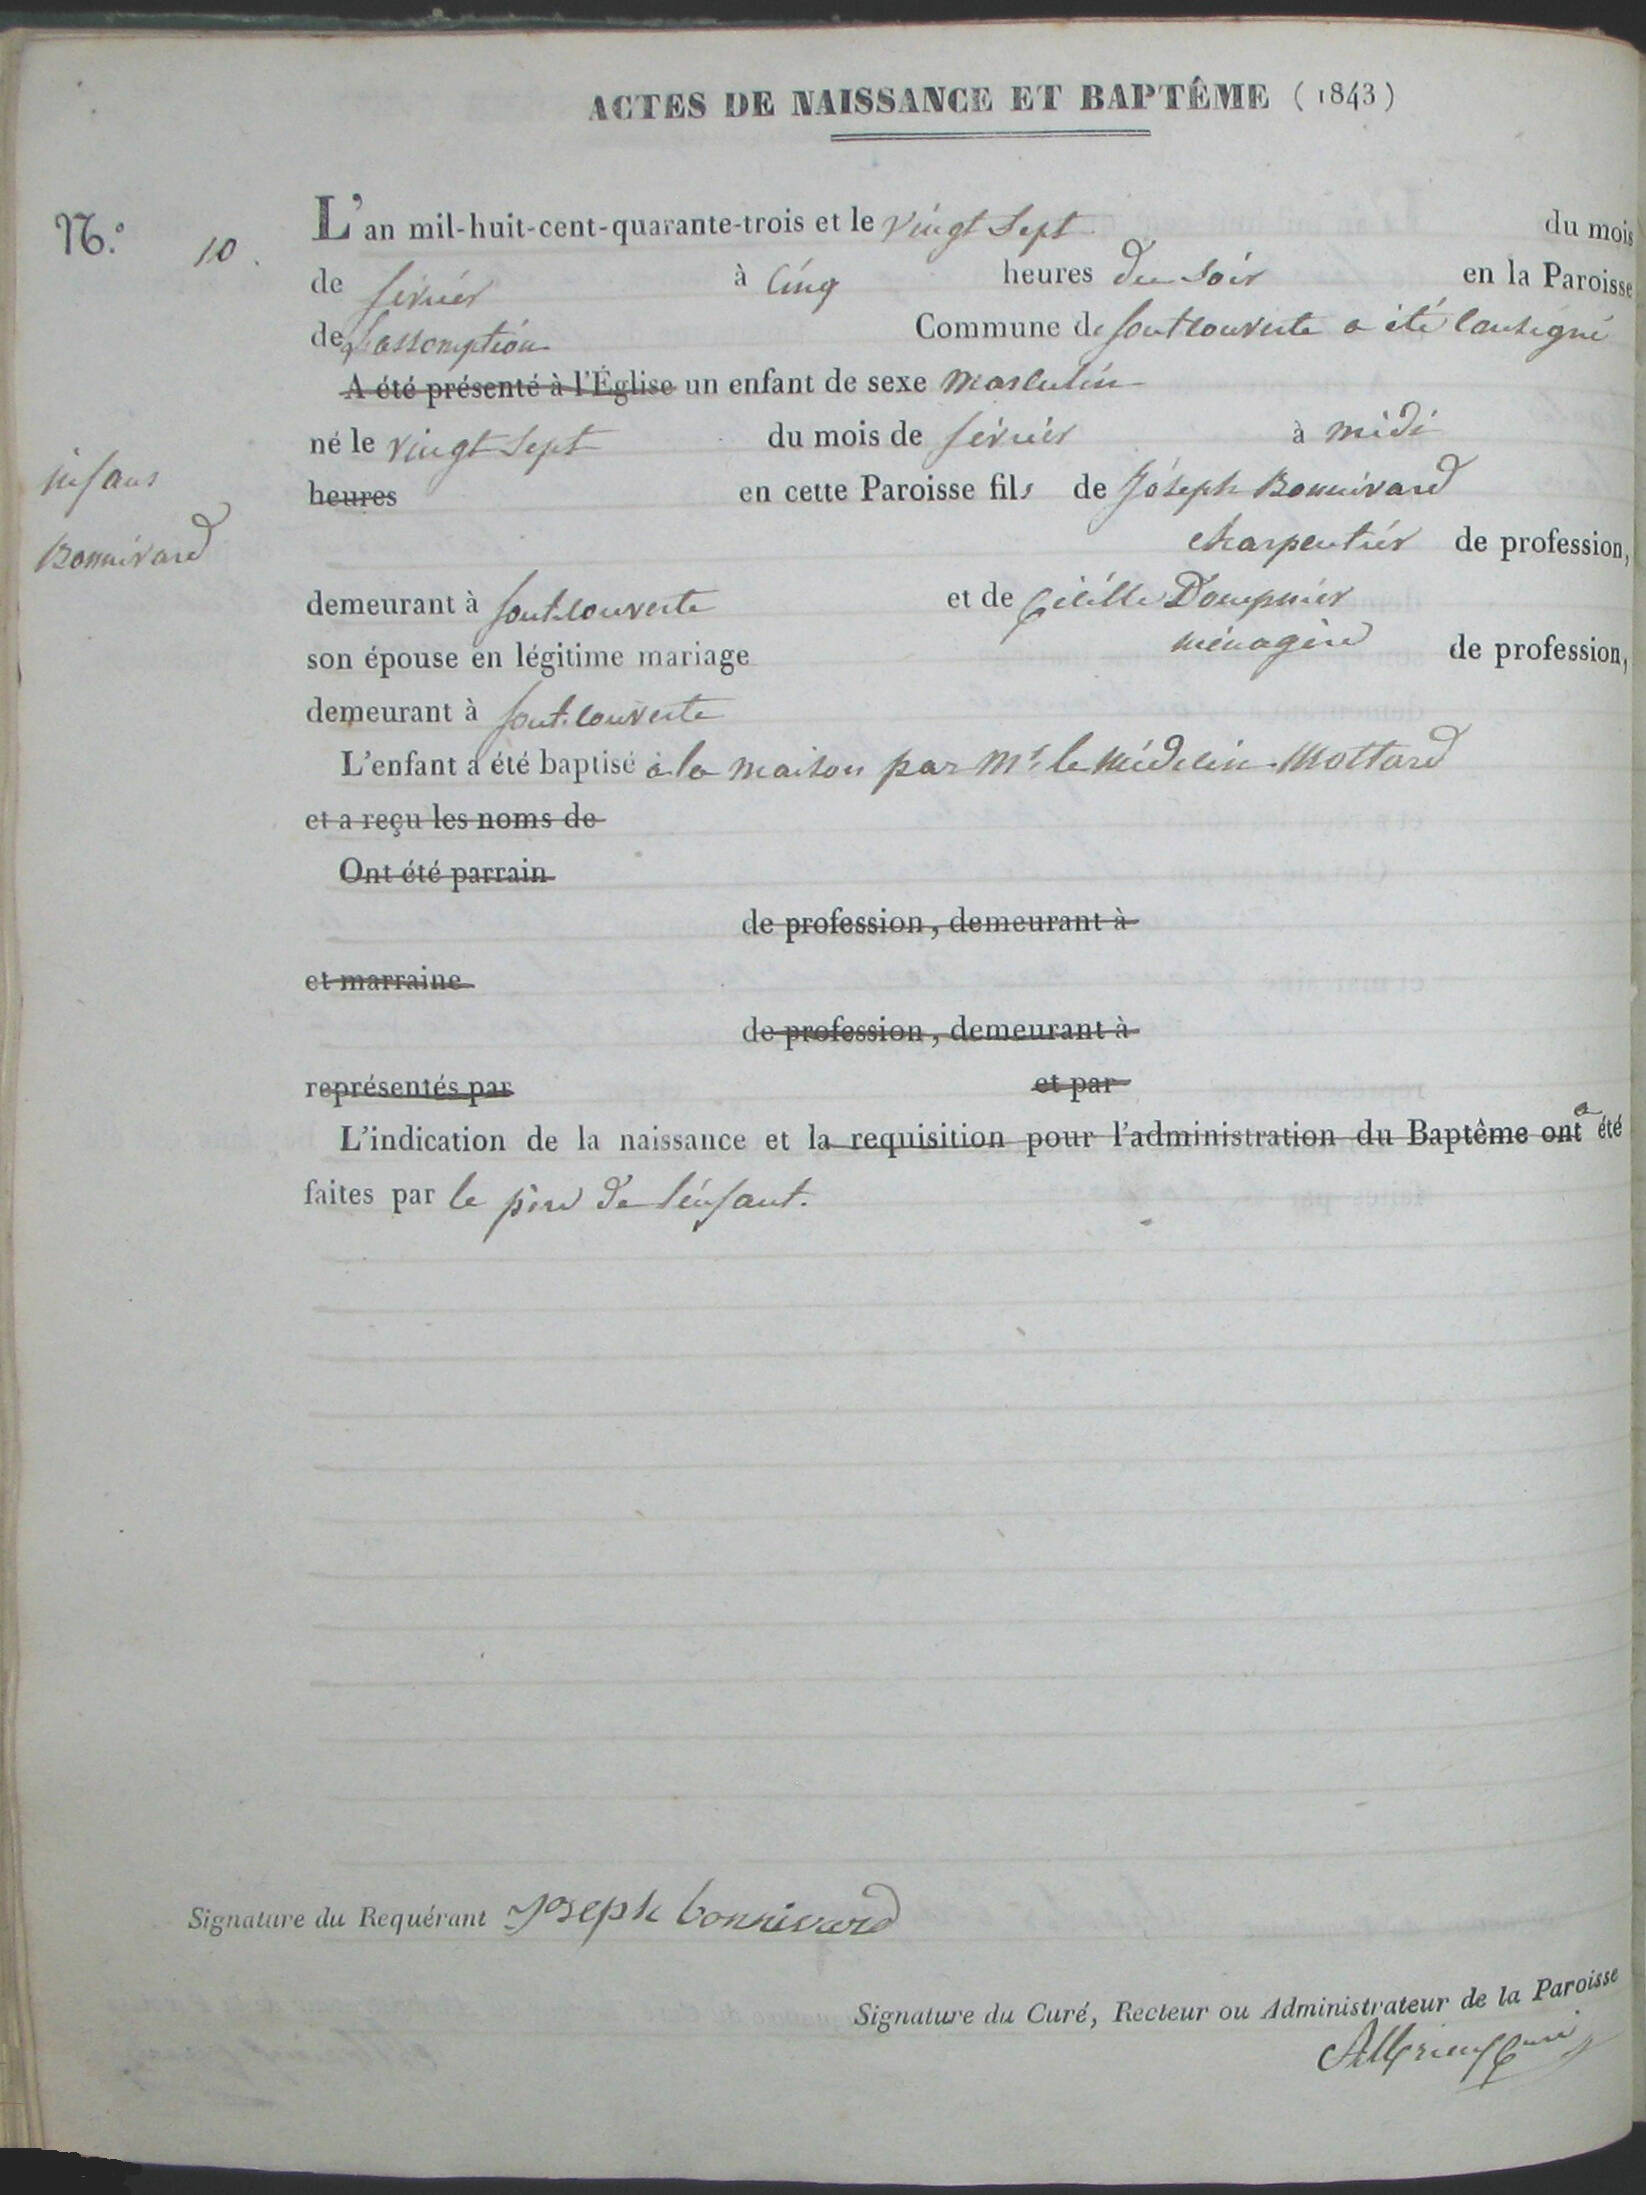 ACTES DE NAISSANCE ET BAPTÊME (1843)
N.° 10.
L'an mil-huit-cent-quarante-trois et le vingt sept du mois
de février à cinq heures du soir en la Paroisse
de Lassomption Commune de fontcouverte a été consigné
A été présenté à l'Église un enfant de sexe masculin
né le vingt sept du mois de février à midi
heures en cette Paroisse fils de Joseph Bonnivard
infans
Bonnivard
charpentier de profession,
demeurant à fontcouverte et de Cicille Dompnier
son épouse en légitime mariage ménagère de profession,
demeurant à fontcouverte
L'enfant a été baptisé à la maison par Mr le médecin Mottard
et a reçu les noms de
Ont été parrain
de profession, demeurant à
et marraine
de profession, demeurant à
représentés par et par
L'indication de la naissance et la requisition pour l'administration du Baptême ont a été
faites par le père de l'enfant.
Signature du Requérant Joseph bonnivard
Signature du Curé, Recteur ou Administrateur de la Paroisse
curé